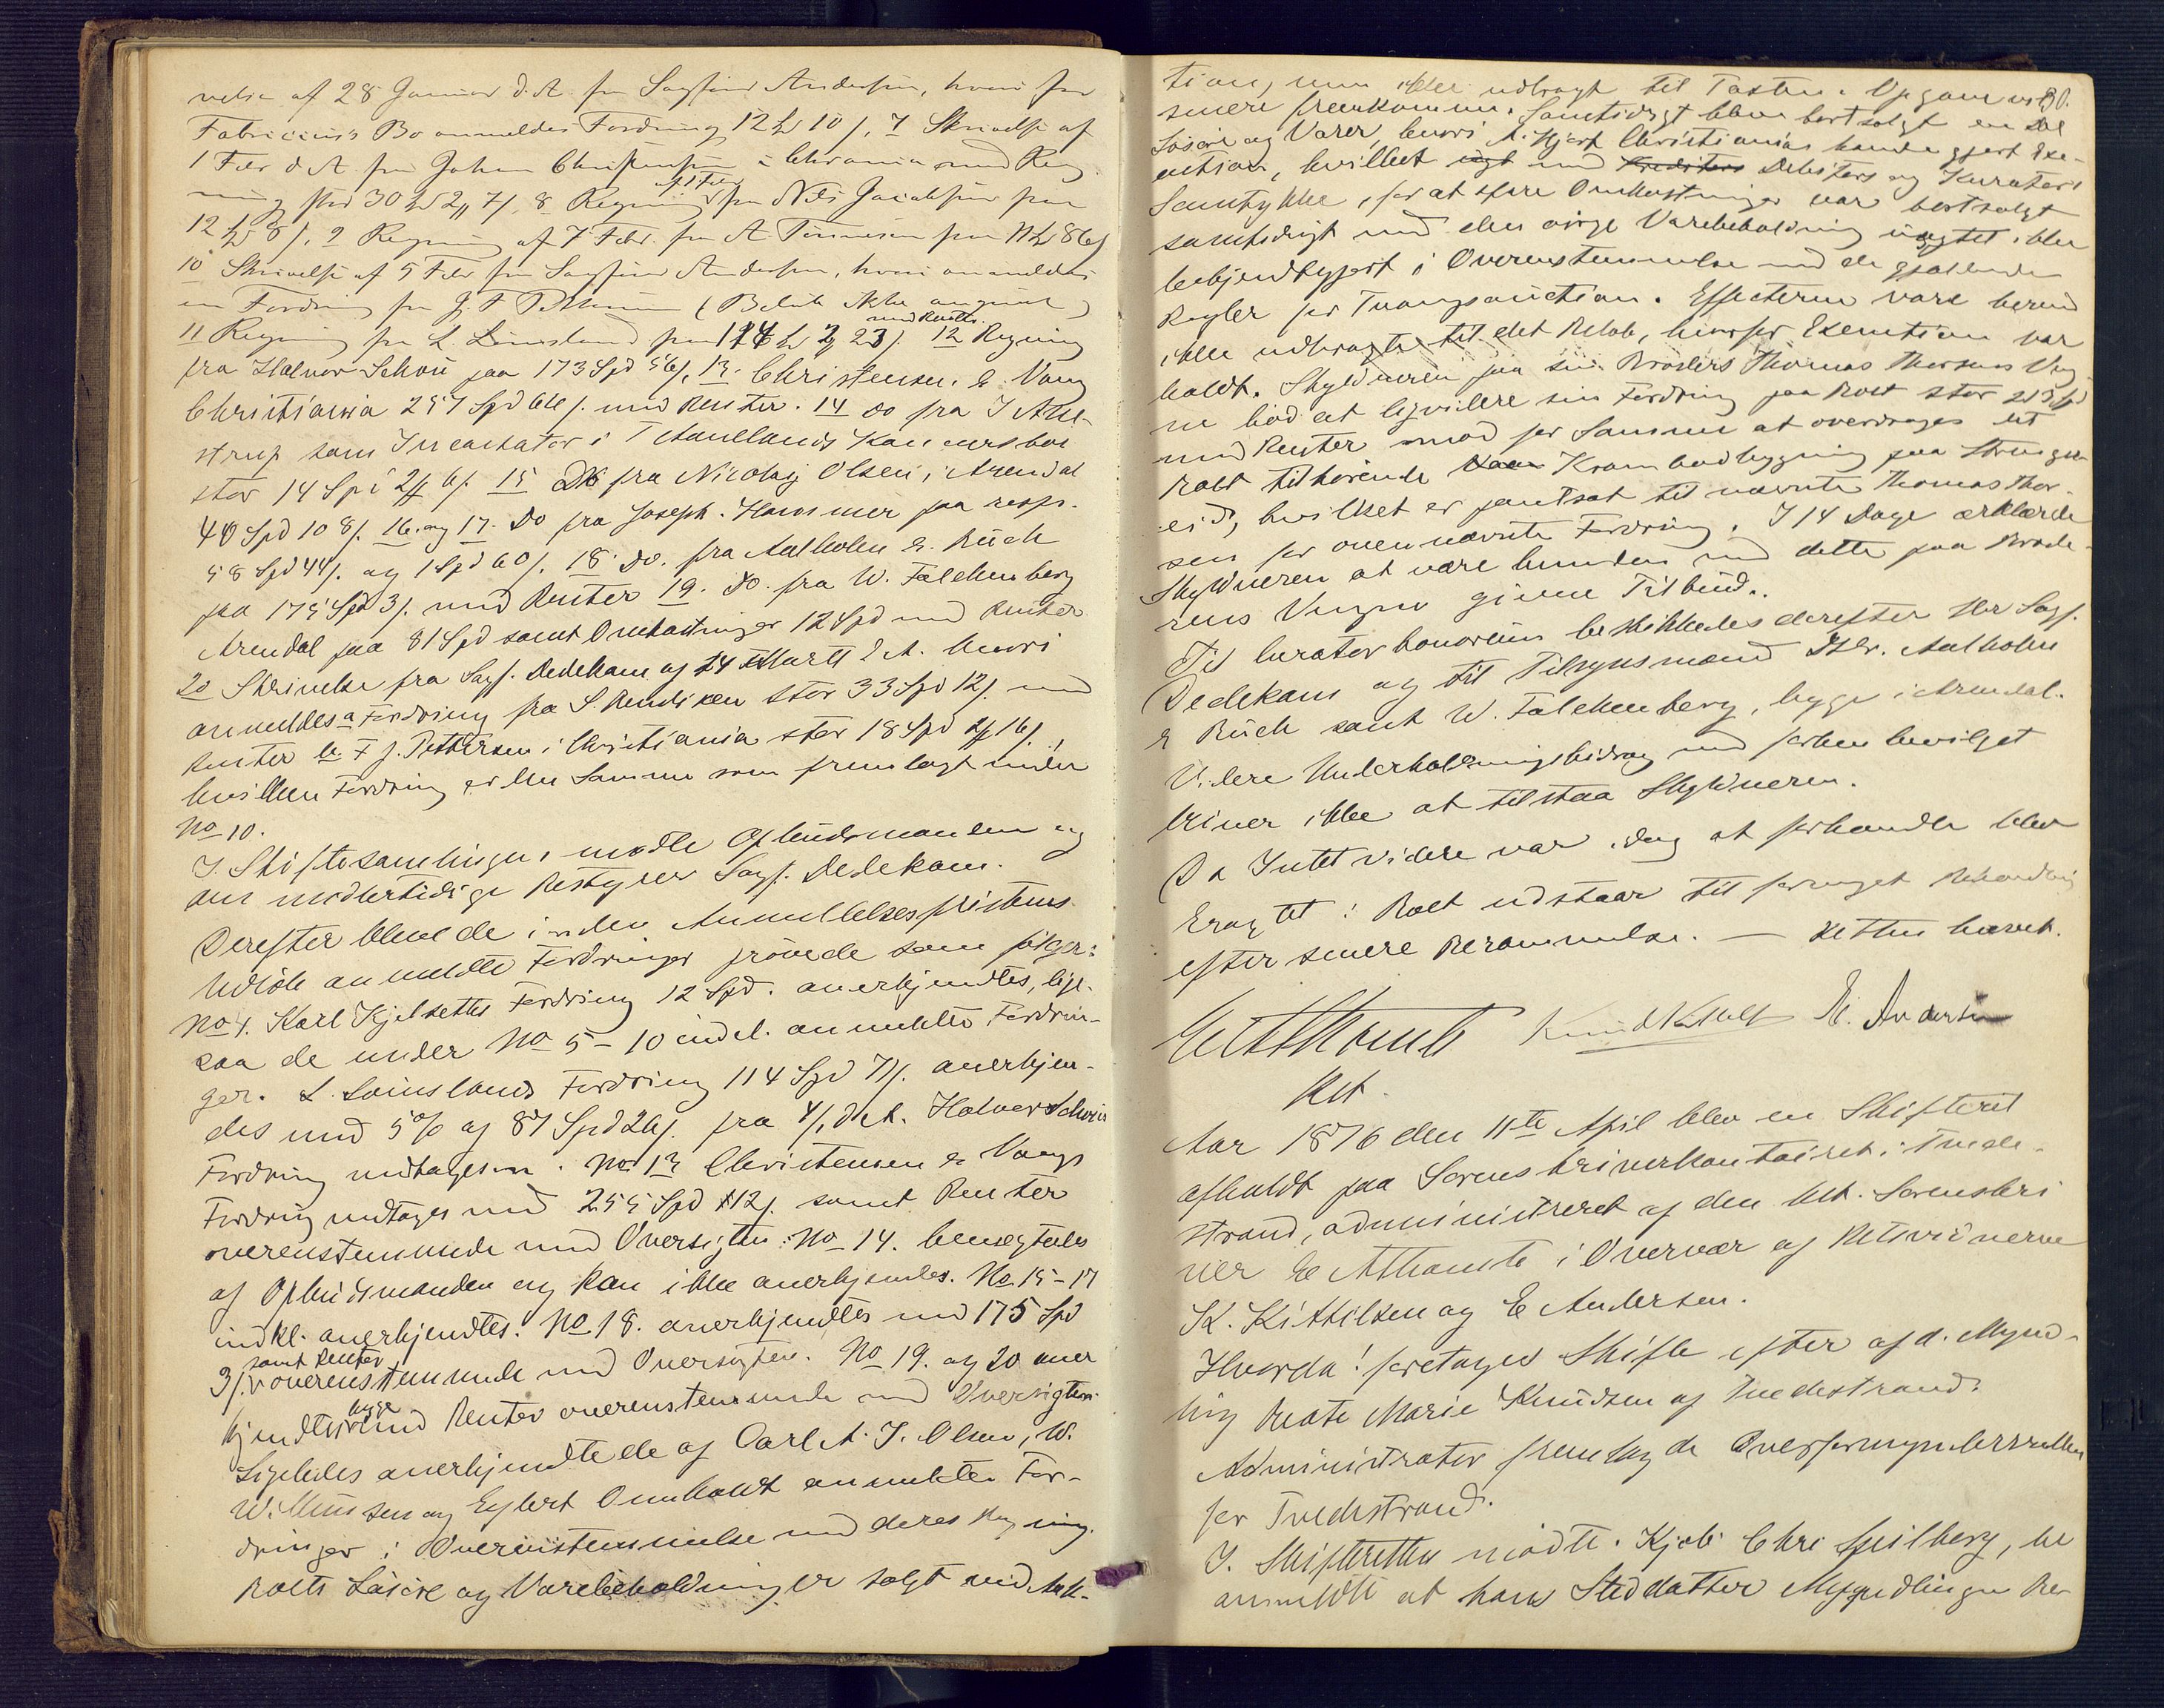 velse af 28 Januar d. A. fra Sagfører Andersen, hvori for
Fabricius's Bo anmeldes Fordring 12 10 /, 7 Skrivelse af
1 Febr d. A. fra Johan Christensen i Chrania med Reg-
ning stor 30 2, 7/, 8 Regning af 1 Febr fra Nils Jacobsen paa
12 8/, 9 Regning af 7 Febr. fra A. Tønnesen paa 86/
10 Skrivelse af 5 Febr fra Sagfører Andersen, hvori anmeldes
en Fordring fra J. F. Pettersen (Beløb ikke angivet)
11 Regning fra L. Løinsland paa 114 2, 23/. med Renter. 12 Regning
fra Halvor Schøu paa 173 Spd 56/, 13. Christensen & Vang
Christiania 257 Spd 66/. med Renter. 14 do fra J. Aal-
strup som Incassator i T. Aanellands Concursbo
stor 14 Spd 2 6/. 15 Do fra Nicolaj Olsen, Arendal
40 Spd 108/. 16. og 17. Do fra Joseph. Hammer paa resp.
58 Spd 44/. og 1 Spd 60/. 18. Do. fra Aalholm & Büch
paa 175 Spd 3/. med Renter 19. Do. fra W. Falckenberg
Arendal paa 81 Spd samt Omkostninger 12 Spd med Renter
20 Skrivelse fra Sagf. Dedekam af 14 Marts d. A. hvori
anmeldes a Fordring fra S. Bendixen stor 33 Spd 12/. med
Renter b. F. J. Pettersen i Christiania stor 18 Spd 2 16/.,
hvilken Fordring er den Samme som fremlagt under
No 10.
I Skiftesamlingen mødte Opbudsmanden og
den midlertidige Bestyrer Sagf. Dedekam.
Derefter blev de inden Anmeldelsesfristens
Udløb anmeldte Fordringer prøvede som følger:
No 4. Karl Kjelsettes Fordring 12 Spd. anerkjendtes, lige-
saa de under No 5-10 incl. anmeldte Fordrin-
ger. L. Løinslands Fordring 114 Spd 71/. anerkjen-
des med 5% af 87 Spd 26/. fra 4/1 d. A. Halvor Schøus
Fordring modtages. No 13 Christensen & Vangs
Fordring modtages med 255 Spd 112/. samt Renter
overenstemmende med Oversigten. No 14. benegtedes
af Opbudsmanden og kan ikke anerkjendes. No 15-17
indkl. anerkjendtes. No 18. anerkjendtes med 175 Spd
3/. samt Renter overenstemmende med Oversigten. No 19. og 20 aner
kjendtes begge med Renter overenstemmende med Oversigten.
Ligeledes anerkjendte de af Carl A. J. Olsen, W.
W. Munsen og Eylert Omholdt anmeldte For-
dringer i Overenstemmelse med deres Regning.
Boets Løsøre og Varebeholdning er solgt ved Auk-
tion, men ikke udbragt til Taxten. Opgave vil 80.
senere fremkomme. Samtidigt blev bortsolgt en Del
Løsøre og Varer, hvori A. Hjort Christiania havde gjort Exe-
cution, hvilket med Kreditors Debitors og Kurators
Samtykke, for at spare Omkostninger var bortsolgt
samtidigt med den øvrige Varebeholdning uagtet ikke
bekjendtgjort i Overenstemmelse med de gjældende
Regler for Tvangsauction. Effecterne vare herved
ikke udbragte til det Beløb, hvorfor Exemtion var
holdt. Skyldneren paa sin Broders Thomas Thorsens Veg-
ne bød at liqvidere sin Fordring paa Boet stor 215 Spd
med Renter mod for Samme at overdrages det
Boet tilhørende Krambodbygning paa Strengere-
eid, hvilket er pantsat til nævnte Thomas Thor-
sen for ovennævnte Fordring. I 14 Dage erklærede
Skyldneren at være bunden ved dette paa Brode-
rens Vegne givne Tilbud.
Til curator bonorum beskikkedes derefter Hr Sagf.
Dedekam og til Tilsynsmænd Hr. Aalholm
& Büch samt W. Falckenberg, begge i Arendal.
Videre Underholdningsbidrag end forhen bevilget
bliver ikke at tilstaa Skyldneren.
Da Intet videre var idag at forhandle blev
Eragtet: Boet udstaar til fornyet Behandling
efter senere Berammelse. — Retten hævet.
Knud Kittels E. Andersen
Ret.
Aar 1876 den 11te April blev en Skifteret
afholdt paa Sorenskriverkontoiret i Tvede-
strand, administreret af den const. Sorenskri
ver i Overvær af Retsvidnerne
K. Kittilsen og E. Andersen.
Hvorda: foretages Skifte efter afd. Mynd-
ling Beate Marie Knudsen af Tvedestrand.
Administrator fremlagde Overformynderrullen
for Tvedestrand.
I Skifteretten mødte Kjøb. Chr Spilberg, der
anmeldte at hans Steddatter Myndlingen Be-